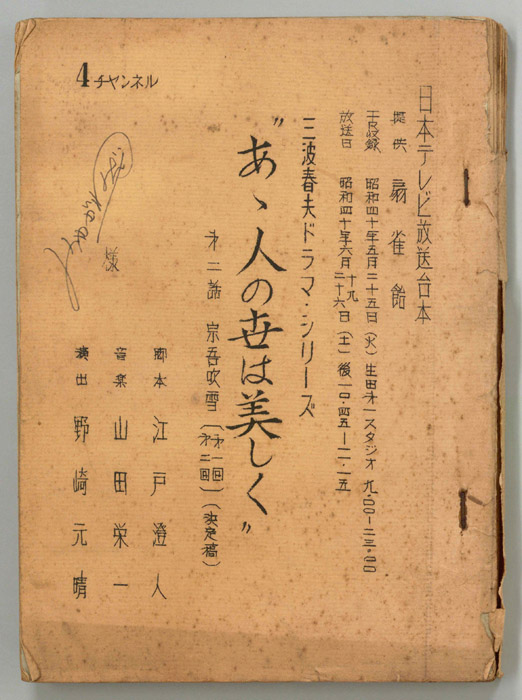 日本テレビ放送台本
提供 扇雀飴
昭和四十年五月二十五日(火)生田オ一スタジオ 九.00—二三.00
放送日 昭和四十年六月 十九 二十六日(土)後一0.四五—一一.一五
三波春夫ドラマ・シリーズ
"あゝ人の世は美しく"
オ二話 宗吾吹雪〔オ一回 オ二回〕(決定稿)
脚本 江戸澄人
音楽 山田栄一
演出 野崎元晴
様
4チャンネル